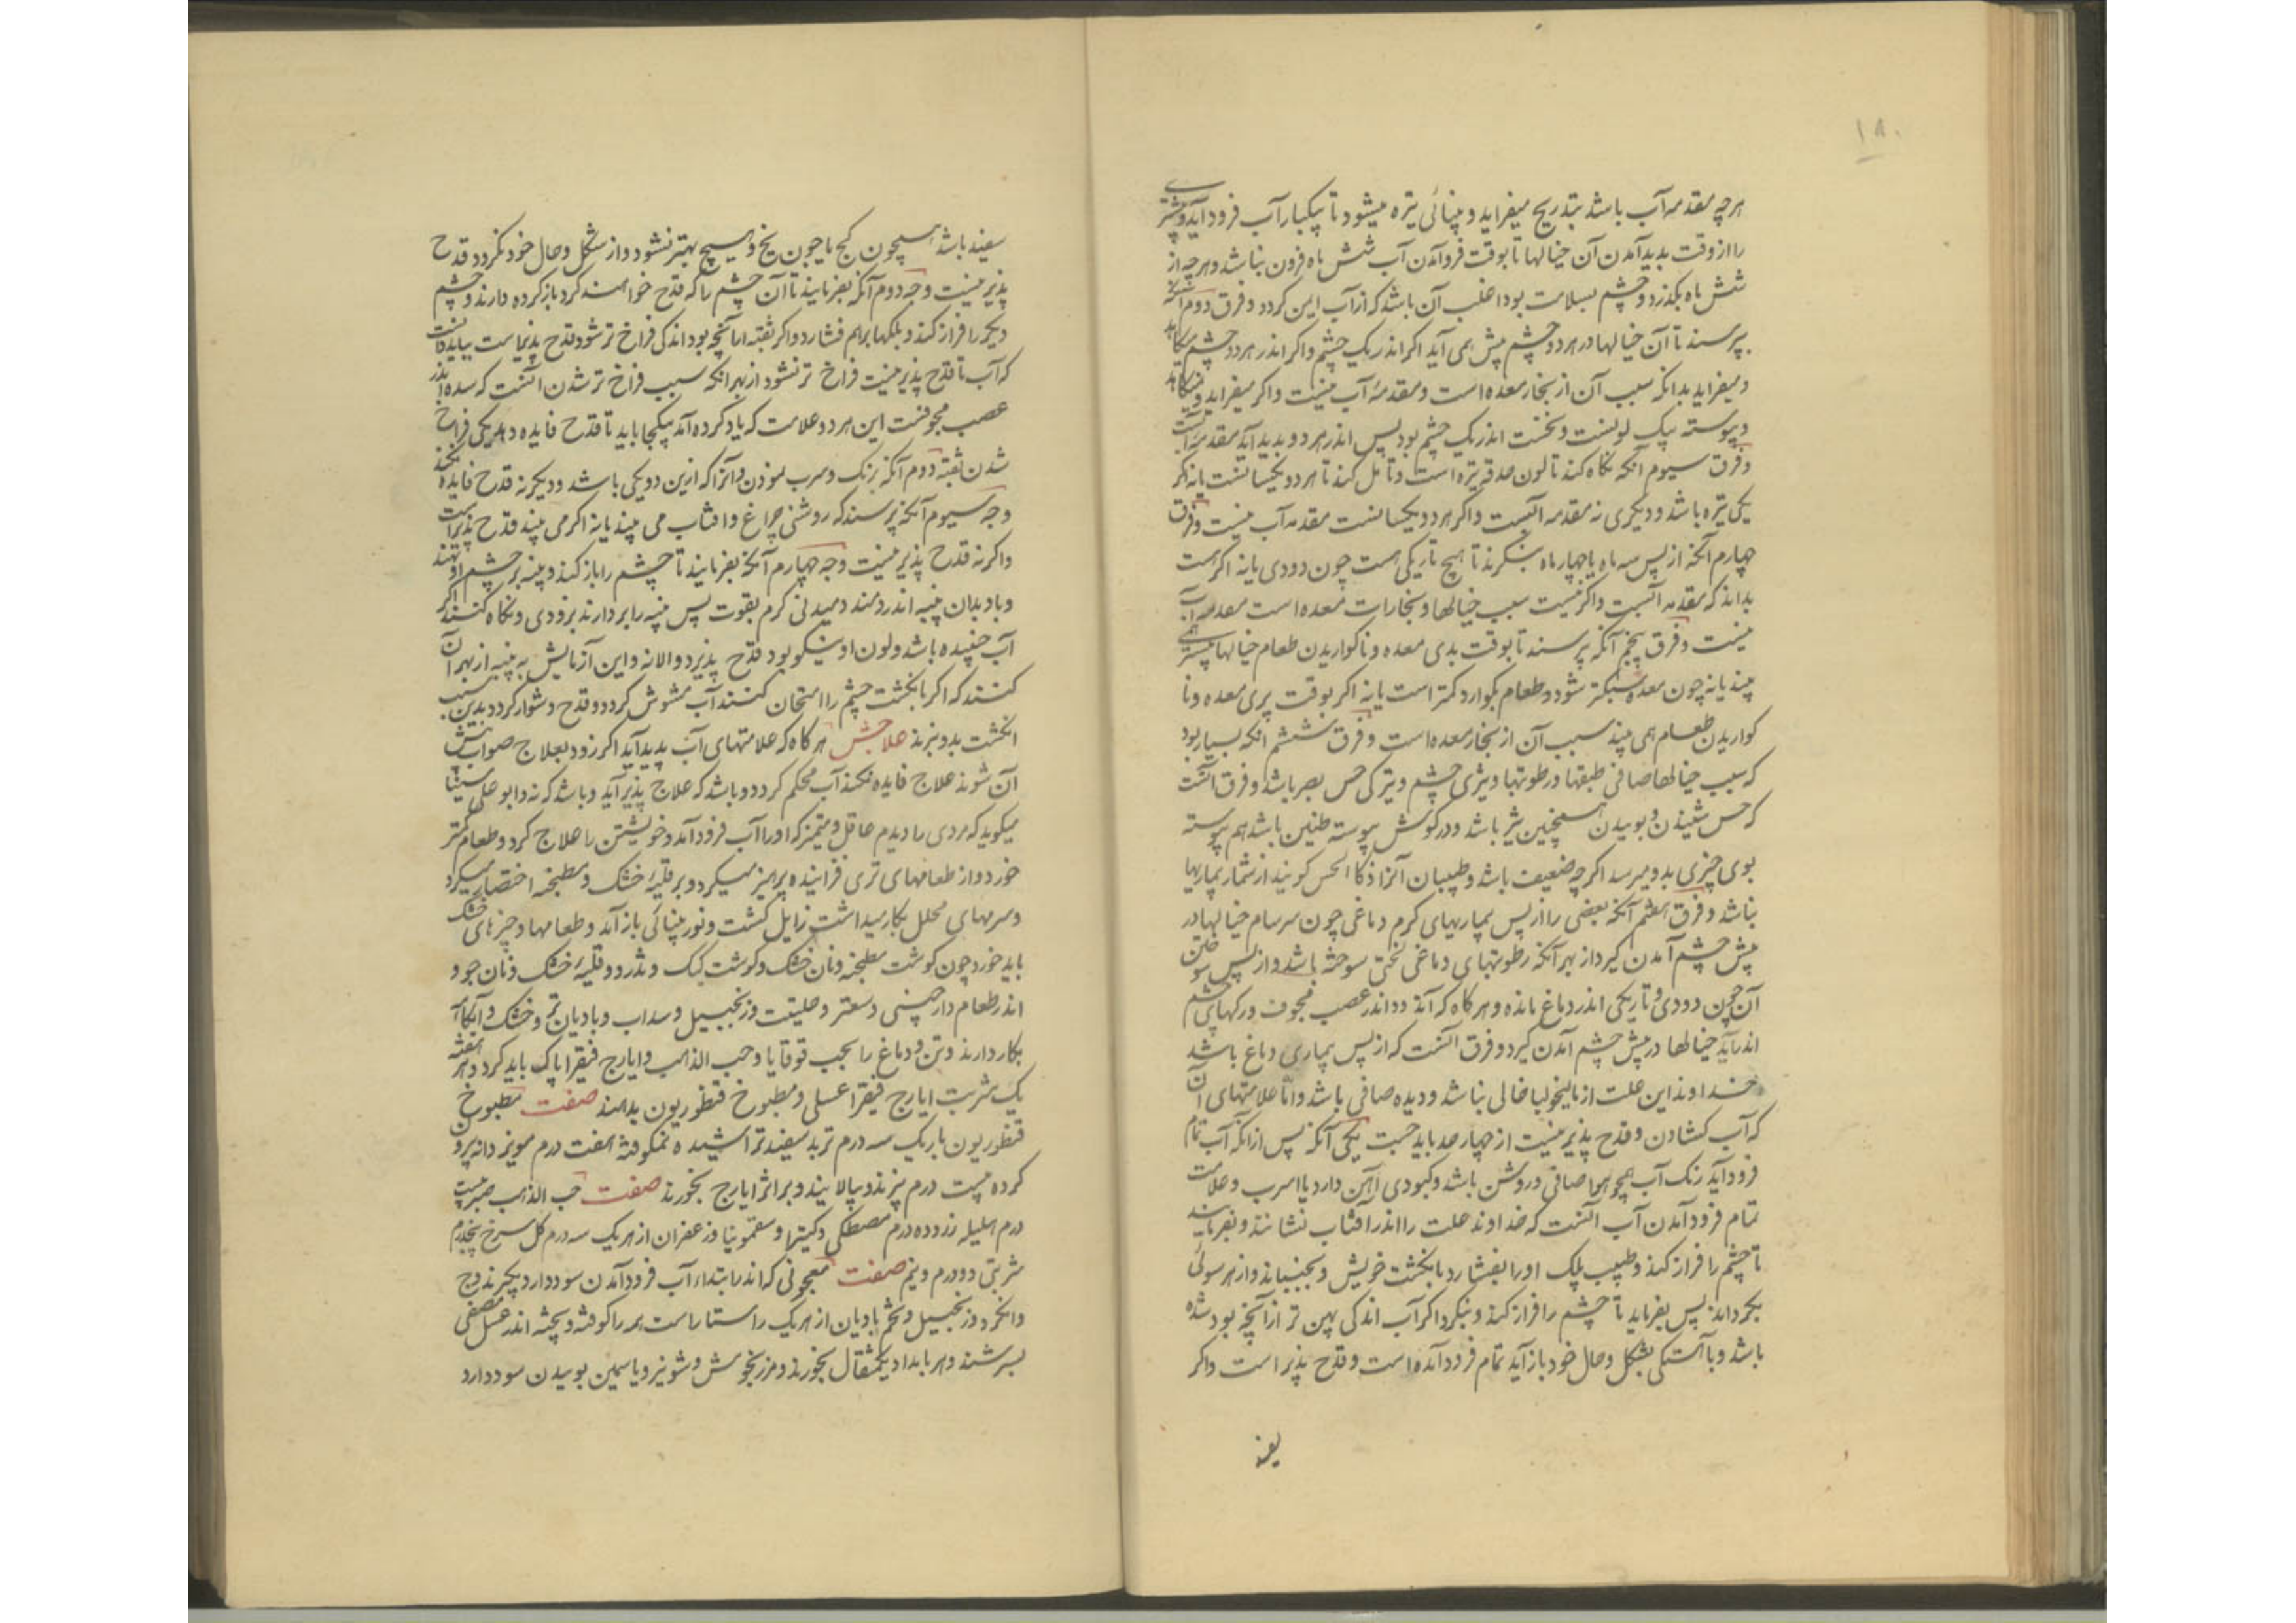 ۱۸۰
هرچه مقدمه آب باشد بتدریج میفزاید و بینائی تیره میشود تا بیکبار آب فرود آید و بیشتری
را از وقت بدید آمدن آن خیالها تا بوقت فروآمدن آب شش ماه فزون نباشد و هرچه از
شش ماه بگذرد و چشم بسلامت بود اغلب آن باشد که از آب ایمن گردد و فرق دوم آنکه
بپرسند تا آن خیالها در هر دو چشم پیش همی آید اگر اندر یک چشم و اگر اندر هر دو چشم میکاهد
و میفزاید بدانکه سبب آن از بخار معده است و مقدمهٔ آب نیست و اگر میفزاید و نمیکاهد
و پیوسته بیک لونست و نخست اندر یک چشم بود پس اندر هر دو بدید آید مقدمه آبست
و فرق سیوم آنکه نگاه کند تا لون حدقه تیره است و تامل کند تا هر دو یکسانست یا نه اگر
یکی تیره باشد و دیگری نه مقدمه آبست و اگر هر دو یکسانست مقدمه آب نیست و فرق
چهارم آنکه از پس سه ماه یا چهار ماه بنگرند تا هیچ تاریکی هست چون دودی یا نه اگر هست
بدانند که مقدمه آبست و اگر نیست سبب خیالها و بخارات معده است مقدمه آب
نیست و فرق پنجم آنکه بپرسند تا بوقت بدی معده و ناگواریدن طعام خیالها بیشتر همی
بیند یا نه چون معده سبکتر شود و طعام بگوارد کمتر است یا نه اگر بوقت پری معده و نا
گواریدن طعام همی بیند سبب آن از بخار معده است و فرق ششم آنکه بسیار بود
که سبب خیالها صافی طبقها و رطوبتها و تیزی چشم و تیزکی حس بصر باشد و فرق آنست
که حس شنیدن و بوییدن همچنین تیز باشد و در گوش پیوسته طنین باشد هم پیوسته
بوی چیزی بدو میرسد اگرچه ضعیف باشد و طبیبان آنرا ذکاء الحس گویند از شمار بیماریها
نباشد و فرق هفتم آنکه بعضی را از پس بیماریهای گرم دماغی چون سرسام خیالها در
پیش چشم آمدن گیرد از بهر آنکه رطوبتهای دماغی لختی سوخته باشد و از پس سوختن
آن چون دودی و تاریکی اندر دماغ مانده و هرگاه که آن دود اندر عصب مجوف و رگهای چشم
اندر آید خیالها در پیش چشم آمدن گیرد و فرق آنست که از پس بیماری دماغ باشد
خداوند این علت از مالیخولیا خالی نباشد و دیده صافی باشد و اما علامتهای آن
که آب گشادن و قدح پذیر نیست از چهار حد باید جست یکی آنکه پس از آنکه آب تمام
فرود آید رنگ آب همچو هوا صافی و روشن باشد و کبودی آهن دارد یا اسرب و علامت
تمام فرود آمدن آب آنست که خداوند علت را اندر آفتاب نشانند و بفرمایند
تا چشم را فراز کند و طبیب پلک او را بفشارد بانگشت خویش و بجنباند و از هر سوئی
بگرداند پس بفرماید تا چشم را فراز کند و بنگرد اگر آب اندکی پهن تر از آنچه بود شده
باشد و باآهستگی بشکل و حال خود باز آید تمام فرود آمده است و قدح پذیر است و اگر
سفید باشد همچون گچ یا چون یخ و هیچ بهتر نشود و از شکل و حال خود نگردد قدح
پذیر نیست وجه دوم آنکه بفرمایند تا آن چشم را که قدح خواهند کرد باز کرده دارند و چشم
دیگر را فراز کند و پلکها براهم فشارد و اگر ثقبه اما آنچه بود اندکی فراخ تر شود قدح پذیراست بباید دانست
که آب تا قدح پذیر نیست فراخ تر نشود از بهر آنکه سبب فراخ تر شدن آنست که سده اندر
عصب مجوفست این هر دو علامت که یاد کرده آمد بیکجا باید تا قدح فایده دهد یکی فراخ
شدن ثقبه دوم آنکه برنگ و سرب نمودن و آنرا که ازین دو یکی باشد و دیگر نه قدح فایده نکند
وجه سیوم آنکه بپرسند که روشنی چراغ و آفتاب می بیند یا نه اگر می بیند قدح پذیر است
و اگر نه قدح پذیر نیست وجه چهارم آنکه بفرمایند تا چشم را باز کند و پنبه بر چشم او نهند
و باد بدان پنبه اندر دمند دمیدنی گرم بقوت پس پنبه را بردارند بزودی و نگاه کنند اگر
آب جنبیده باشد و لون او نیکو بود قدح پذیرد و الا نه و این آزمایش به پنبه از بهر آن
کنند که اگر بانگشت چشم را امتحان کنند آب مشوش گردد و قدح دشوار گردد بدین سبب
انگشت بدو نبرند علاجش هرگاه که علامتهای آب پدید آید اگر زود بعلاج صواب پیش
آن شوند علاج فایده نکند آب محکم گردد و باشد که علاج پذیر آید و باشد که نه و ابو علی سینا
میگوید که مردی را دیدم عاقل و متمیز که او را آب فرود آمد و خویشتن را علاج کرد و طعام کمتر
خورد و از طعامهای تری فزاینده پرهیز میکرد و بر قلیهٔ خشک و مطبخنه اختصار میکرد
و سرمهای محلل بکار میداشت زایل گشت و نور بینائی باز آمد و طعامها و چیزهای خشک
باید خورد چون گوشت مطبخنه و نان خشک و گوشت کبک و تذرو و قلیهٔ خشک و نان جو و
اندر طعام دارچینی و سعتر و حلتیت و زنجبیل و سداب و بادیان تر و خشک و آبکامه
بکار دارند و تن و دماغ را بحب قوقایا و حب الذهب و ایارج فیقرا پاک باید کرد و هر هفته
یک شربت ایارج فیقرا عسلی و مطبوخ قنطوریون بدهند صفت مطبوخ
قنطوریون باریک سه درم تربد سفید تراشیده نمکوفته هفت درم مویز دانه بیرون
کرده بیست درم بپزند و بپالایند و بر اثر ایارج بخورند صفت حب الذهب صبر بیست
درم هلیله زرد ده درم مصطکی و کتیرا و سقمونیا و زعفران از هر یک سه درم گل سرخ پنجدرم
شربتی دو درم و نیم صفت معجونی که اندر ابتداء آب فرود آمدن سود دارد بگیرند وج
و انگزد و زنجبیل و تخم بادیان از هر یک راستا راست همه را کوفته و بیخته اندر عسل مصفی
بسرشند و هر بامداد یکمثقال بخورند و مرزنجوش و شونیز و یاسمین بوییدن سود دارد